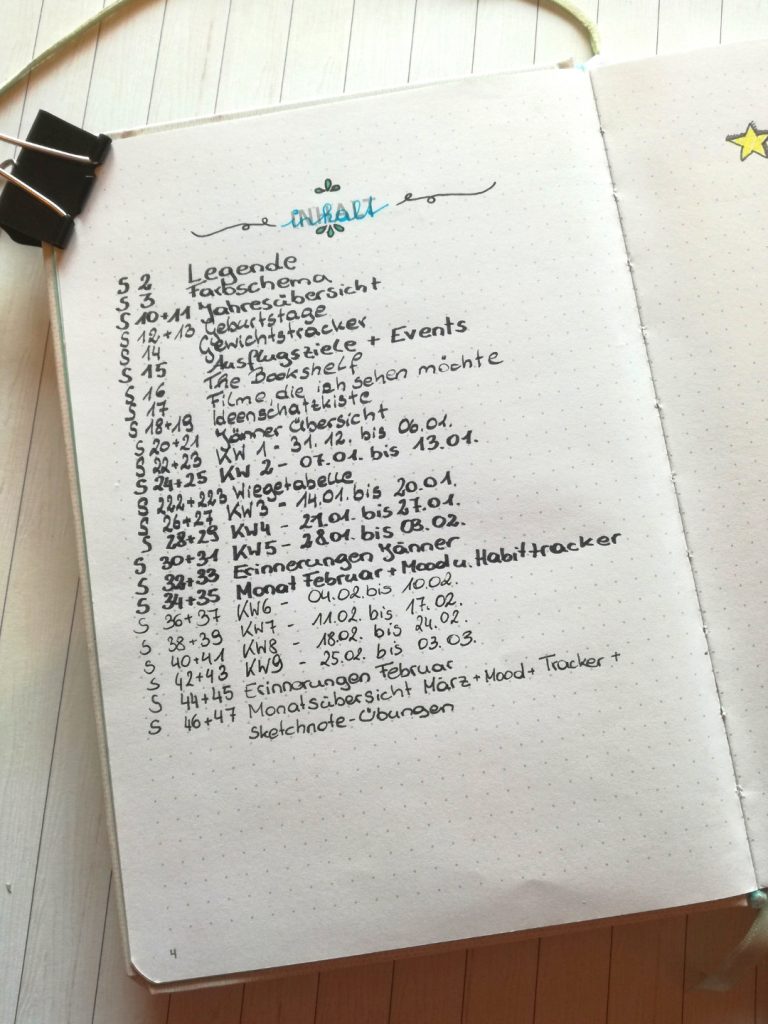 inhalt
S 2 Legende
S 3 Farbschema
S 10+11 Jahresübersicht
S 12+13 Geburtstage
S 14 Gewichtstracker
S 15 Ausflugsziele + Events
S 16 The Bookshelf
S 17 Filme, die ich sehen möchte
S 18+19 Ideenschatzkiste
S 20+21 Jänner Übersicht
S 22+23 KW 1 - 31.12. bis 06.01.
S 24+25 KW 2 - 07.01. bis 13.01.
S 222+223 Wiegetabelle
S 26+27 KW3 - 14.01. bis 20.01.
S 28+29 KW4 - 21.01. bis 27.01.
S 30+31 KW5 - 28.01. bis 03.02.
S 32+33 Erinnerungen Jänner
S 34+35 Monat Februar + Mood u. Habittracker
S 36+37 KW6 - 04.02. bis 10.02.
S 38+39 KW7 - 11.02. bis 17.02.
S 40+41 KW8 - 18.02. bis 24.02.
S 42+43 KW9 - 25.02. bis 03.03.
S 44+45 Erinnerungen Februar
S 46+47 Monatsübersicht März + Mood + Tracker +
Sketchnote-Übungen
4